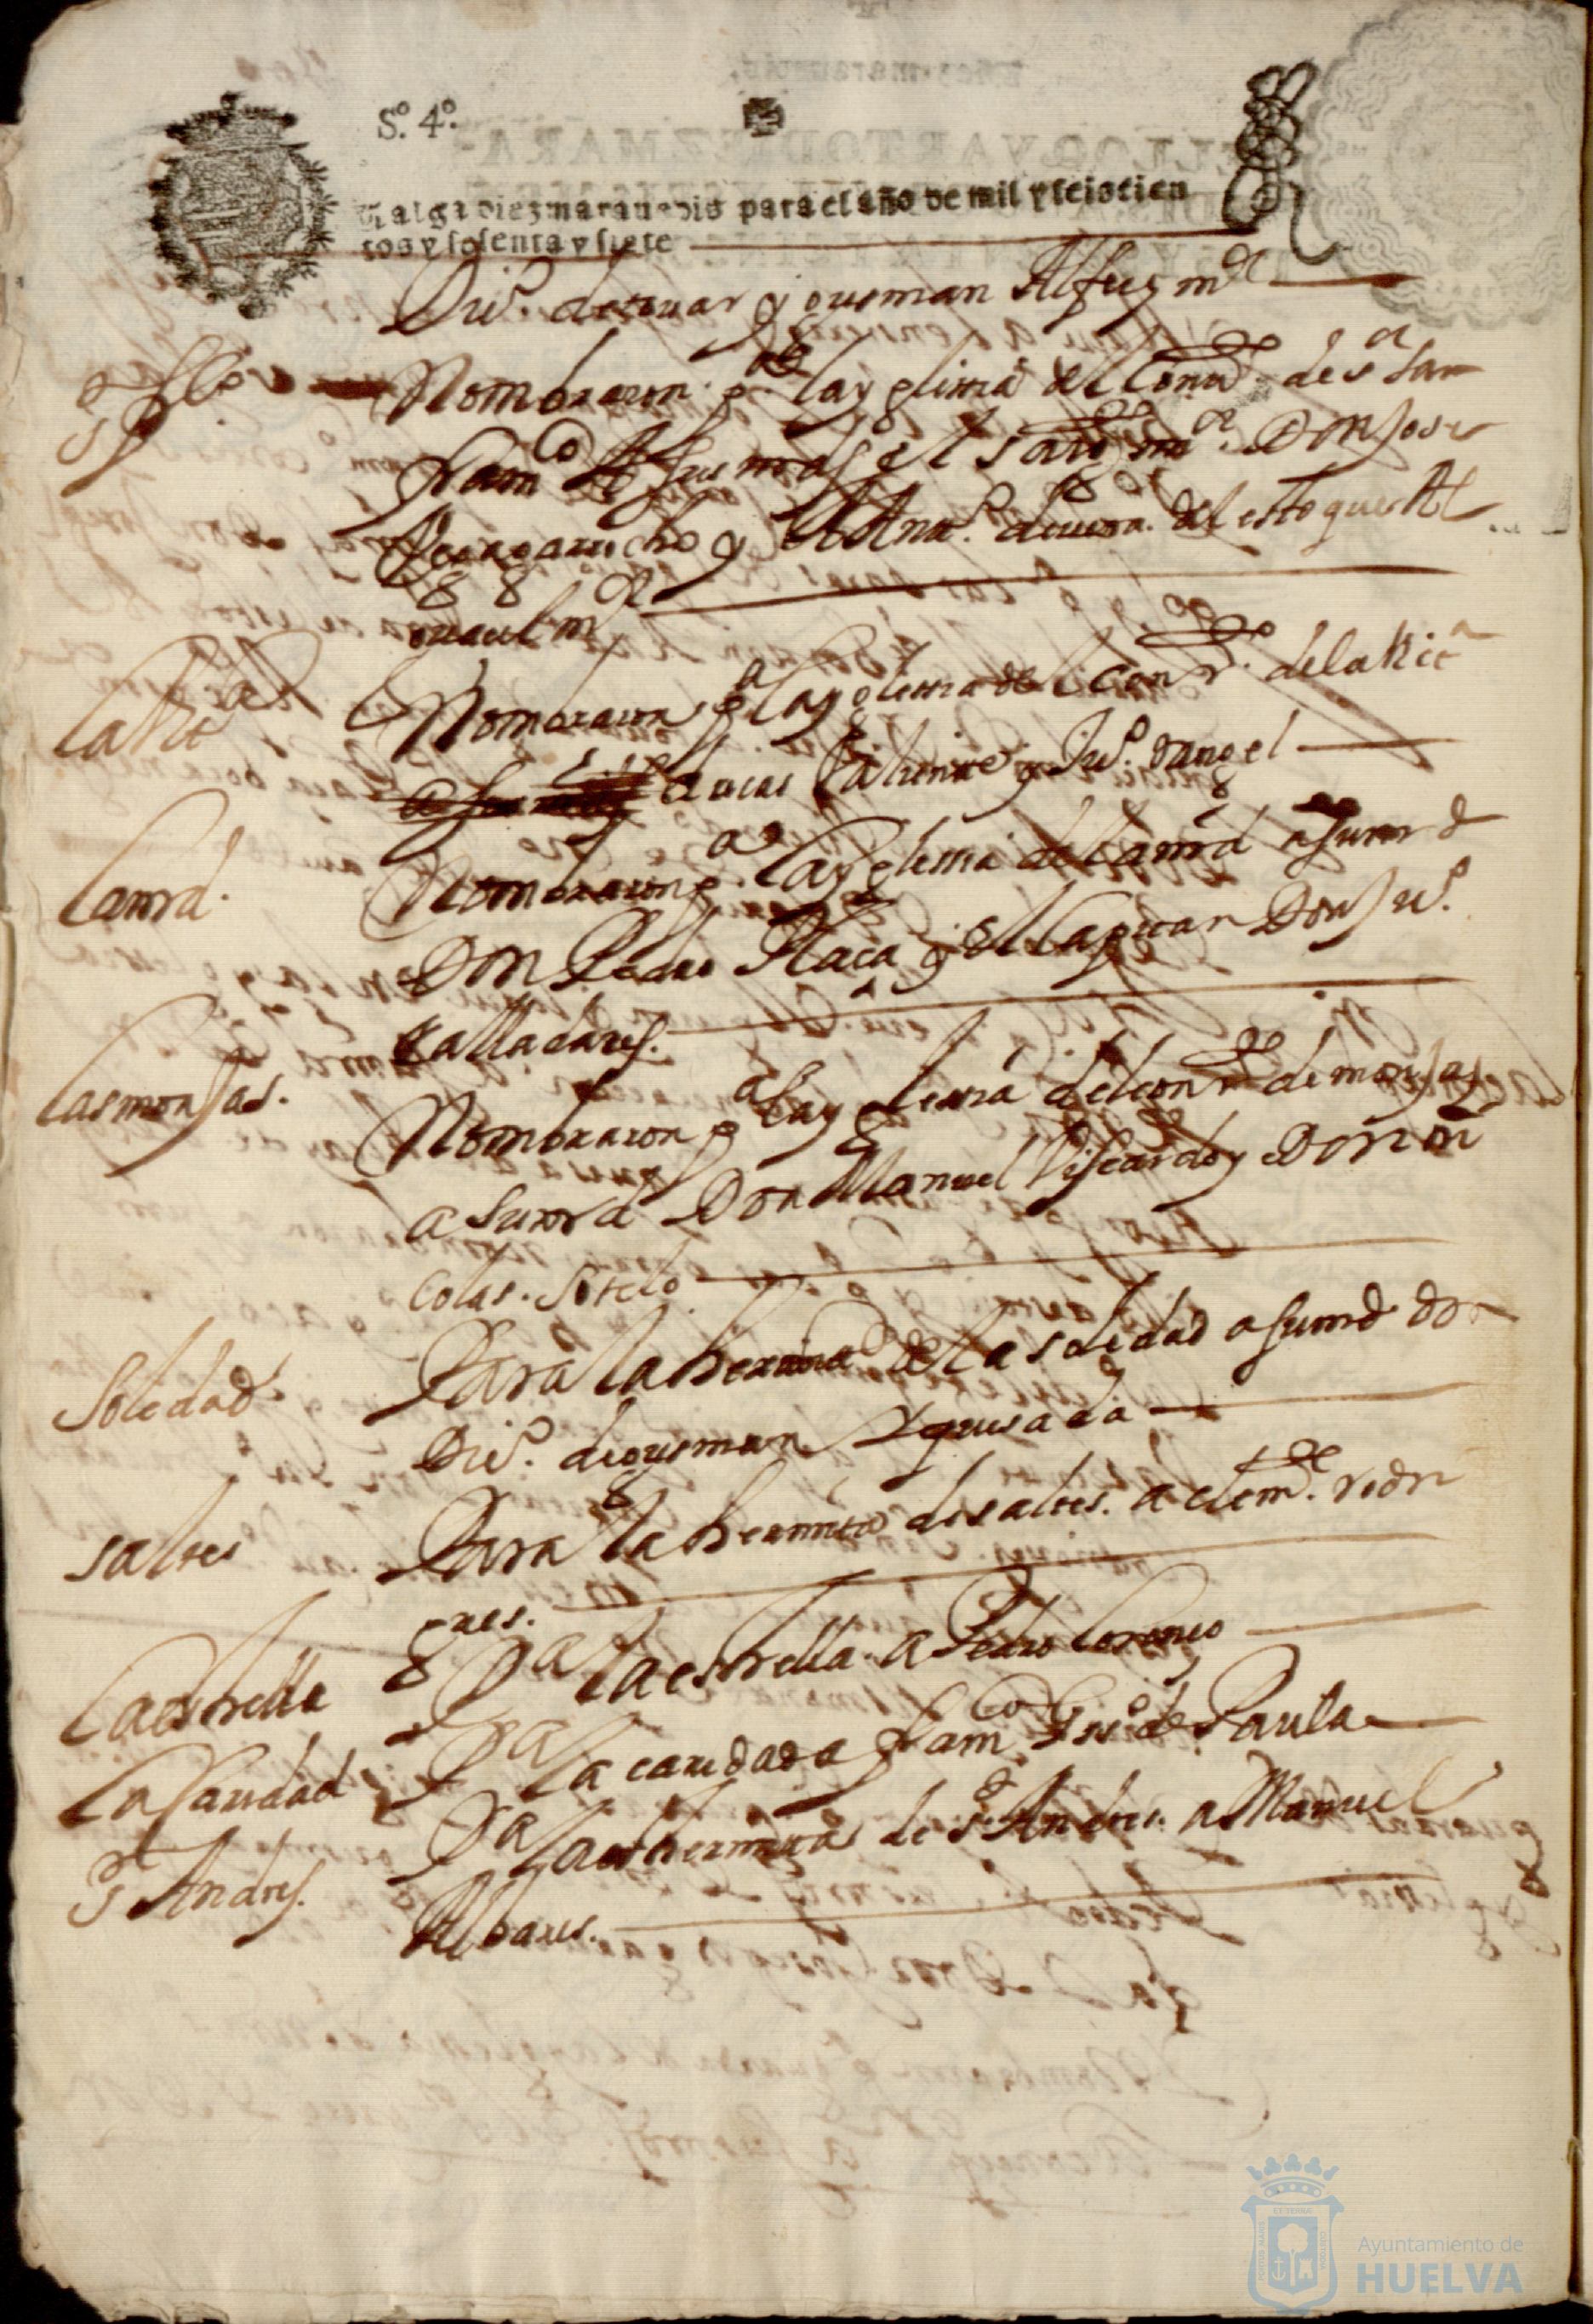 S.º 4.º
Valga diez marauedis para el año de mil y seiscien
tos y sesenta y siete
Diº. de touar y gusman Alferez m
Nombraron pª la yglessia del Conuº de sª san
Franco A sus mds el sarg mor Don Jose
y Anª de uera del estoque Al
guacil mor
la Vitª
Nombraron pª la yglessia del Conuº de la Vitª
a Lucas Valiente y Juº Rangel
la md.
Nombraron pª la yglessia de la md a su md
Don Pedro Plaça y el Capitan Don Juº
Valladares.
las monjas.
Nombraron pª la yglessia del conuº de monjas
a su md Don Manuel Viscardo y Don ni
colas. sotelo
Soledad
Para la hermita de la soledad a su md don
Diº. de gusman y quesada
saltes
Para la hermita de saltes. a clemte. rodri
gues.
la estrella
Pª la estrella. a Pedro lorenço
la Caridad
Pª la caridad a Franco de Paula
s Andres.
Pª la hermita de s. Andres. a Manuel
Albares.
Ayuntamiento de
HUELVA